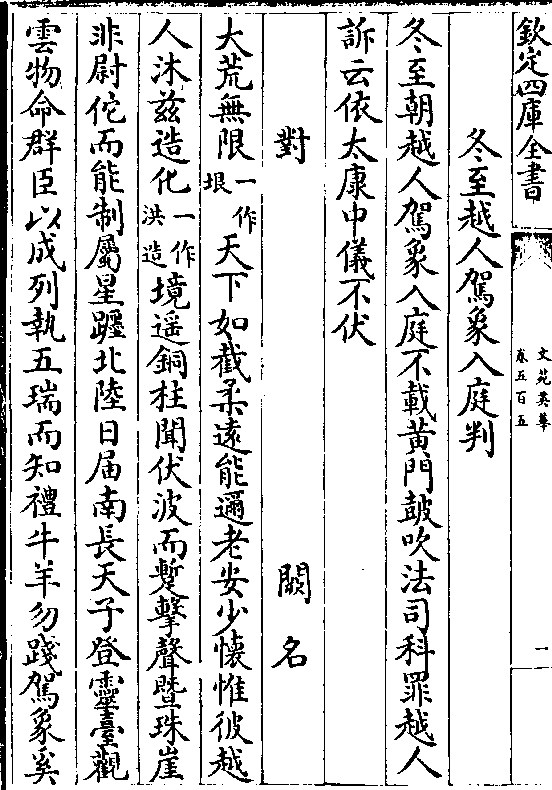 欽定四庫全書
文苑英華
卷五百五
一
冬至越人駕象入庭判
冬至朝越人駕象入庭不載黃門鼓吹法司科罪越人
訴云依太康中儀不伏
對
闕名
大荒無限一作垠天下如截柔遠能邇老安少懷惟彼越
人沐兹造化一作洪造境遥銅柱聞伏波而蹔擊聲暨珠崖
非尉佗而能制屬星躔北陸日届南長天子登靈臺觀
雲物命群臣以成列執五瑞而知禮牛羊勿踐駕象奚